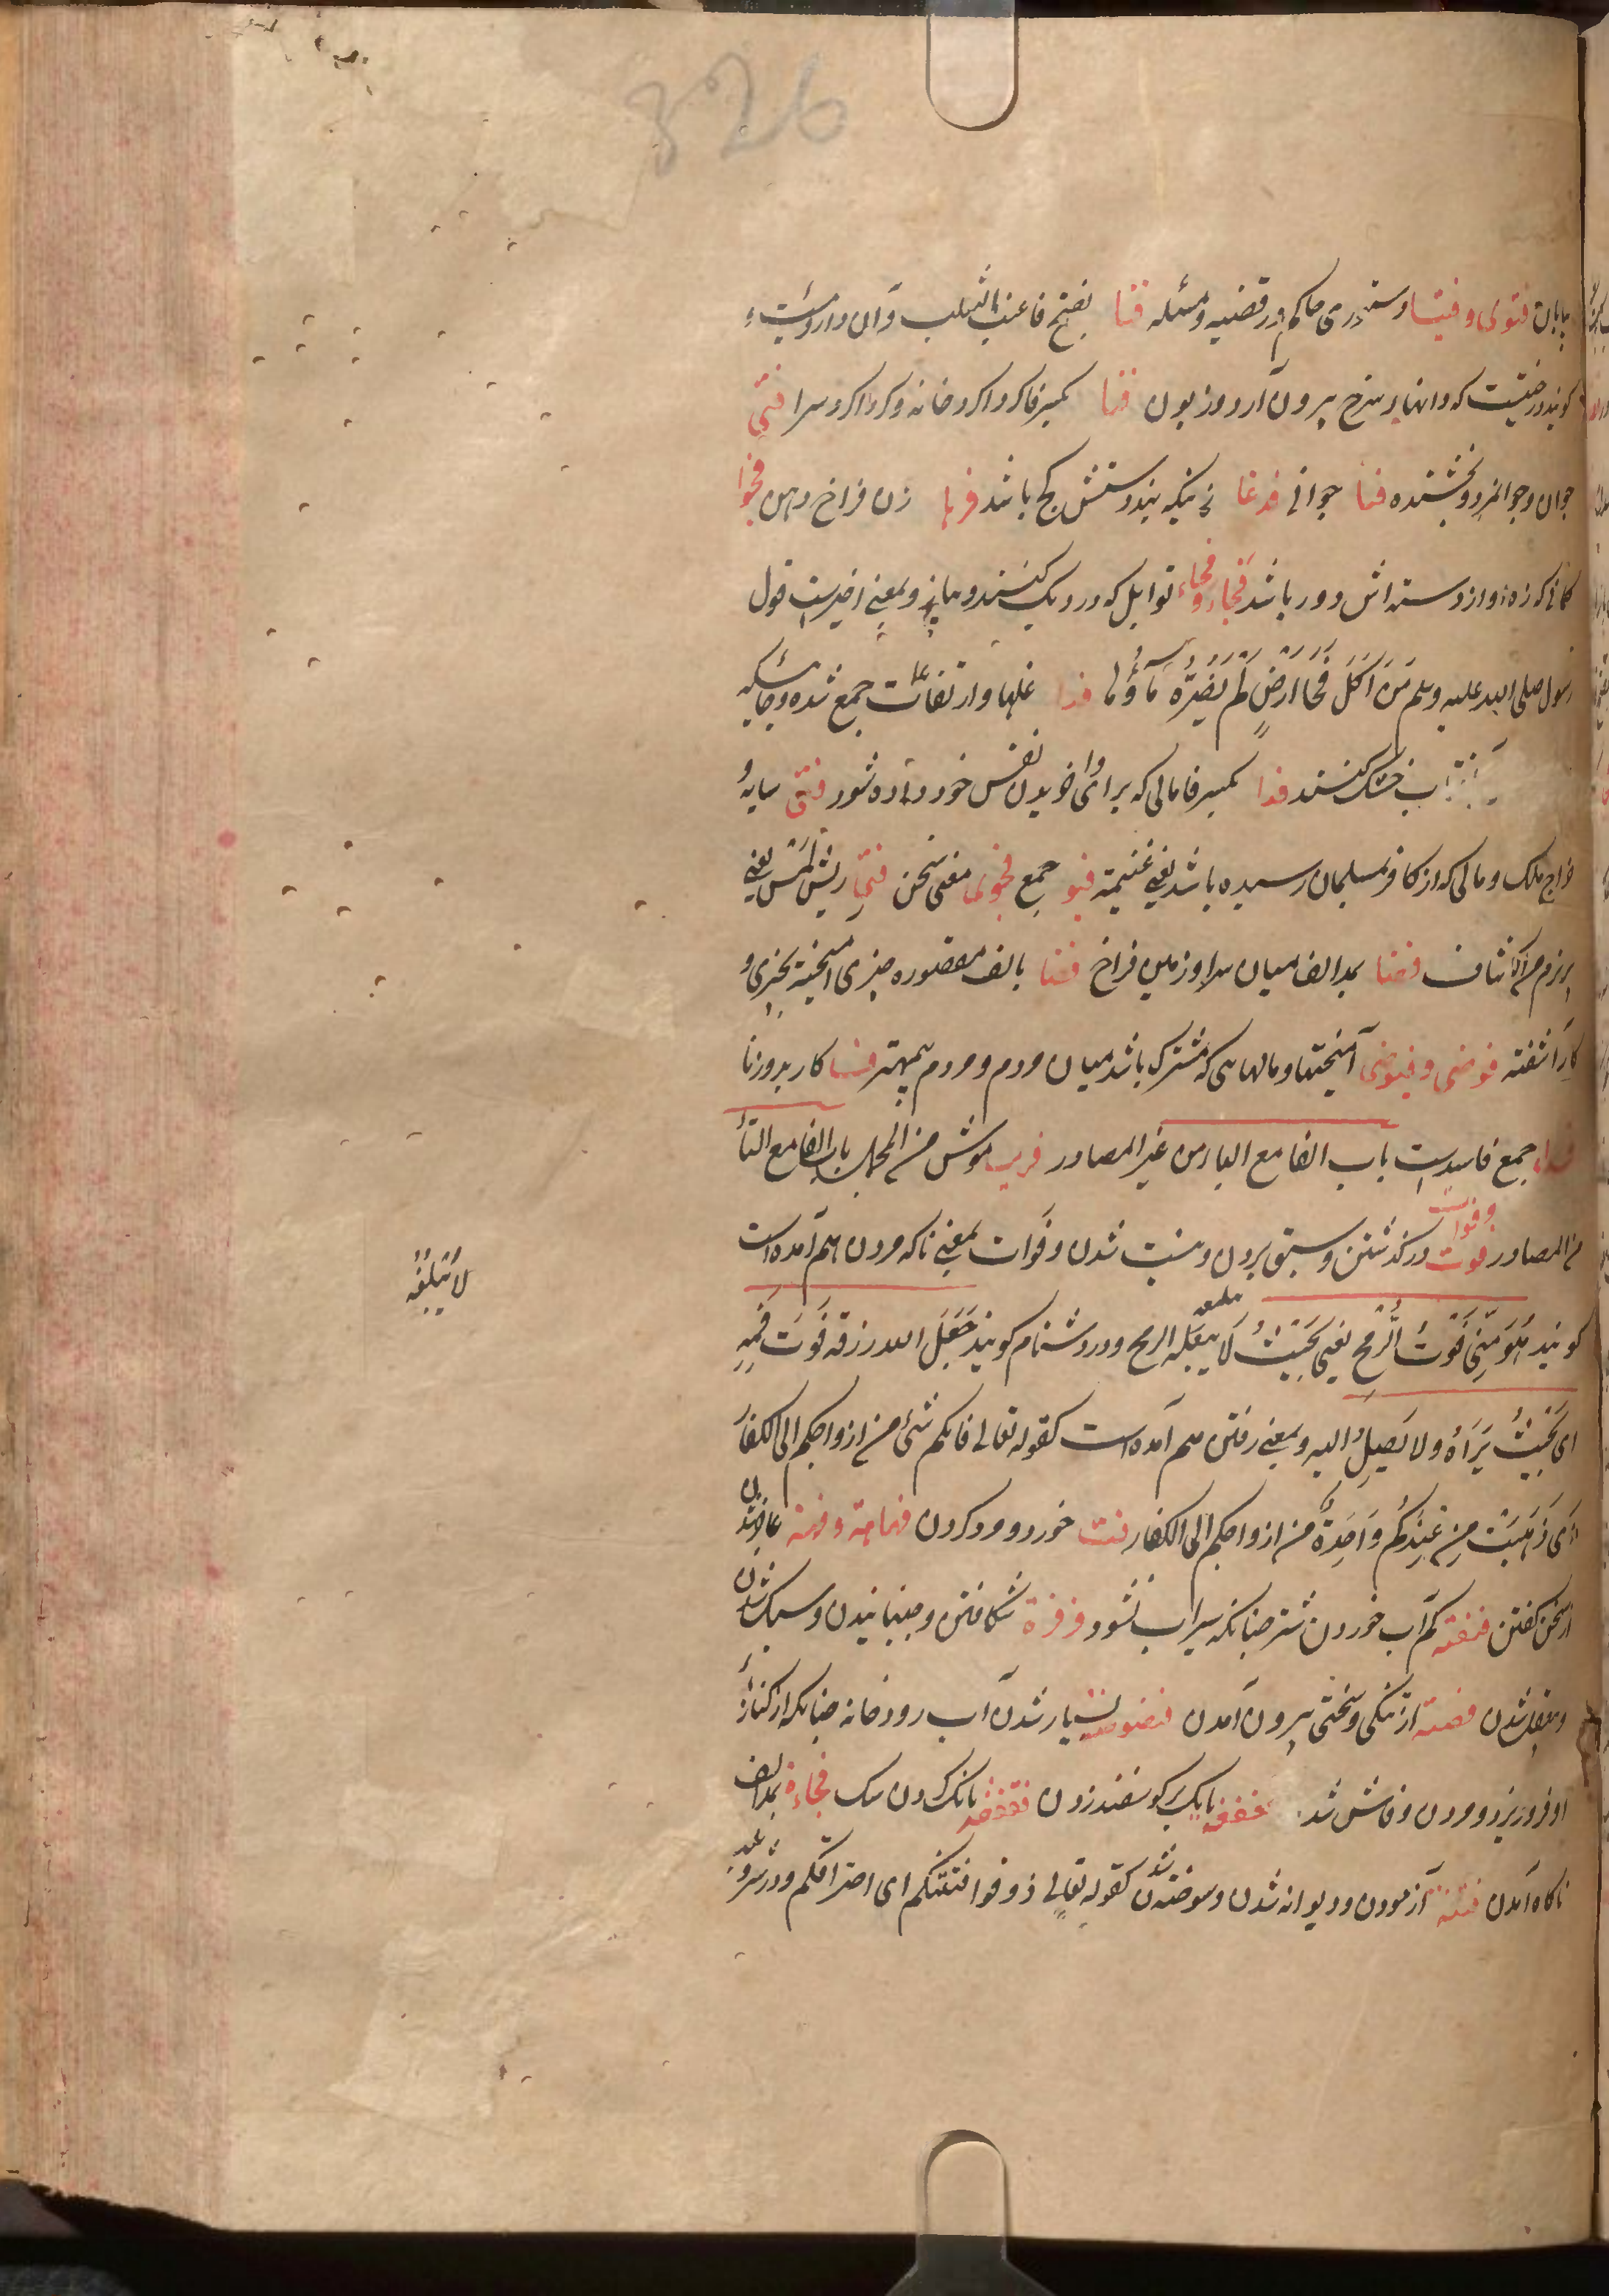 326
بابان فتوی و فتیا دستوری حاکم در قضیه و مسئله فنا بفتح فا عنب الثعلب و آن داروئیست و
کویند درختیست که دانهای سرخ بیرون آرد و زبون فنا بکسر فا کرداکرد خانه و کرداکرد سرا فتی
جوان و جوانمرد و بخشنده فتا جوانی فدعا زنیکه بند دستش کج باشد فرها زن فراخ دهن فجوا
کمانی که زه او از دسته اش دور باشد فحا و فحاء توابل که در دیک کنند و پیاز و بمعنی اخیرست قول
رسول صلی الله علیه و سلم مَنْ اَکَلَ فَحَا اَرْضٍ لَمْ یَضُرَّهُ مَاؤُها فدا غلها و ارتفاعات جمع شده و جائیکه
خشک کنند فدا بکسر فا مالی که برای وا خریدن نفس خود داده شود فئ سایه و
خراج ملک و مالی که از کافر بمسلمان رسیده باشد یعنی غنیمة فیو جمع فحوی معنی سخن
فضا بمد الف میان سرا و زمین فراخ فضا بالف مقصوره چیزی آمیخته بچیزی و
کار آشفته فوضی و فیوضی آمیختها و مالهائی که مشترک باشد میان مردم و مردم بیمهتر فسا کار بد و زنا
جمع فاسدست باب الفا مع الباء من غیر المصادر باب الفا مع التاء
من المصادر فوت و فوات درکذشتن و سبق بردن و نیست شدن و فوات بمعنی ناکه مردن هم آمده است
کویند هُوَ مِنِّی فَوْتُ الرُّمْحِ یعنی بِحَیْثُ لَا یبلغه الرمح و در دشنام کویند جَعَلَ الله رزقه فَوْتَ فَمِهِ
ای بِحَیْثُ یَرَاهُ ولا یَصِلُ الیه و بمعنی رفتن هم آمده است کقوله تعالی فاتکم شئ من ازواجکم الی الکفار
اَی ذَهَبَتْ مِنْ عِنْدِکُمْ وَاحِدَةٌ من ازواجکم الی الکفار فت خورد و مرد کردن فهاهة و فهة عاجز شدن
از سخن کفتن کم آب خوردن شتر چنانکه سیراب نشود فزفزة شکافتن و جنبانیدن و سبک شدن
از تنکی و سختی بیرون آمدن بسیار شدن آب رودخانه چنانکه از کنار
او فرو ریزد و مردن و فاش شدن بانک بر کوسفند زدن بانک کردن سک فجاءة بمد الف
ناکاه آمدن فتنة آزمودن و دیوانه شدن و سوخته شدن کقوله تعالی ذوقوا فتنتکم ای احتراقکم
لَا یَبْلُغُهُ